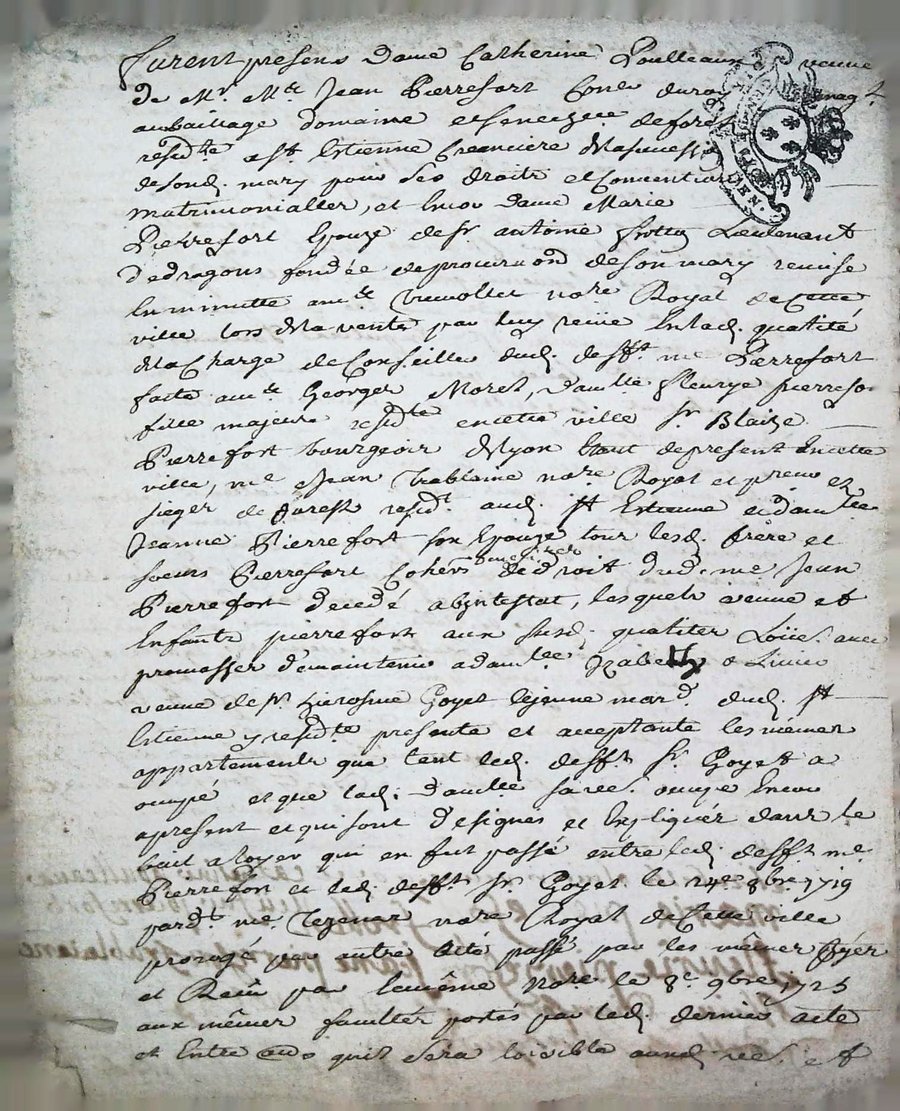 furent presens Dame Catherine Poulleaux veuve
de Mr. Me. Jean Pierrefort Conr. duroy
au bailliage domaine et senechee deforest
residte. a st Estienne Creanciere dela success
desond. mary pour ses droits et Conventions
matrimonialles, et Encor Dame Marie
Pierrefort Epouze desr. antoine frotty Lieutenant
Dedragons fondée de procuraon desonmary remise
En minutte a me. notre. Royal de Cette
ville lors dela vente par luy En lad. qualité
dela Charge deConseiller dud. defft. me Pierrefort
faite a me. Georges Morel, damlle. fleurye pierrefor
fille majeure residte en cette ville sr. Blaize
Pierrefort bourgeois de Lyon Etant depresent En cette
ville, me Jean Trablaine notre Royal et procur ez
sieges de forest residt. aud. st Estienne et damlle.
Jeanne Pierrefort son Epouze tous lesd. frere et
soeurs Pierrefort Coherrs de droit dud. me Jean
Pierrefort decedé abintestat, lesquels veuve et
Enfants pierrefort aux susd. qualites Loüe. avec
promesses demaintenir a damlle. Izabeth olivier
veuve de sr hierosme Goyet lejeune mard. dud. st
Estienne y residte presente et acceptante les mêmes
appartements que tent led. defft sr. Goyet a
occupé et que lad. damlle sa vee. occupe Encor
apresent et qui sont Designes et Expliqués dans le
bail a loyer qui en fut passé entre led. defft me.
Pierrefort et led. defft sr. Goyet le 24e 8bre 1719
pardt. me. Tezenas notre Royal de Cette ville
prorogé par autre acte passé par les mêmes
et Receu par lemême notre le 8e 9bre 1725
aux mêmes facultés portés par led. dernier acte
et Entre quil sera loisible auxd. vee. et